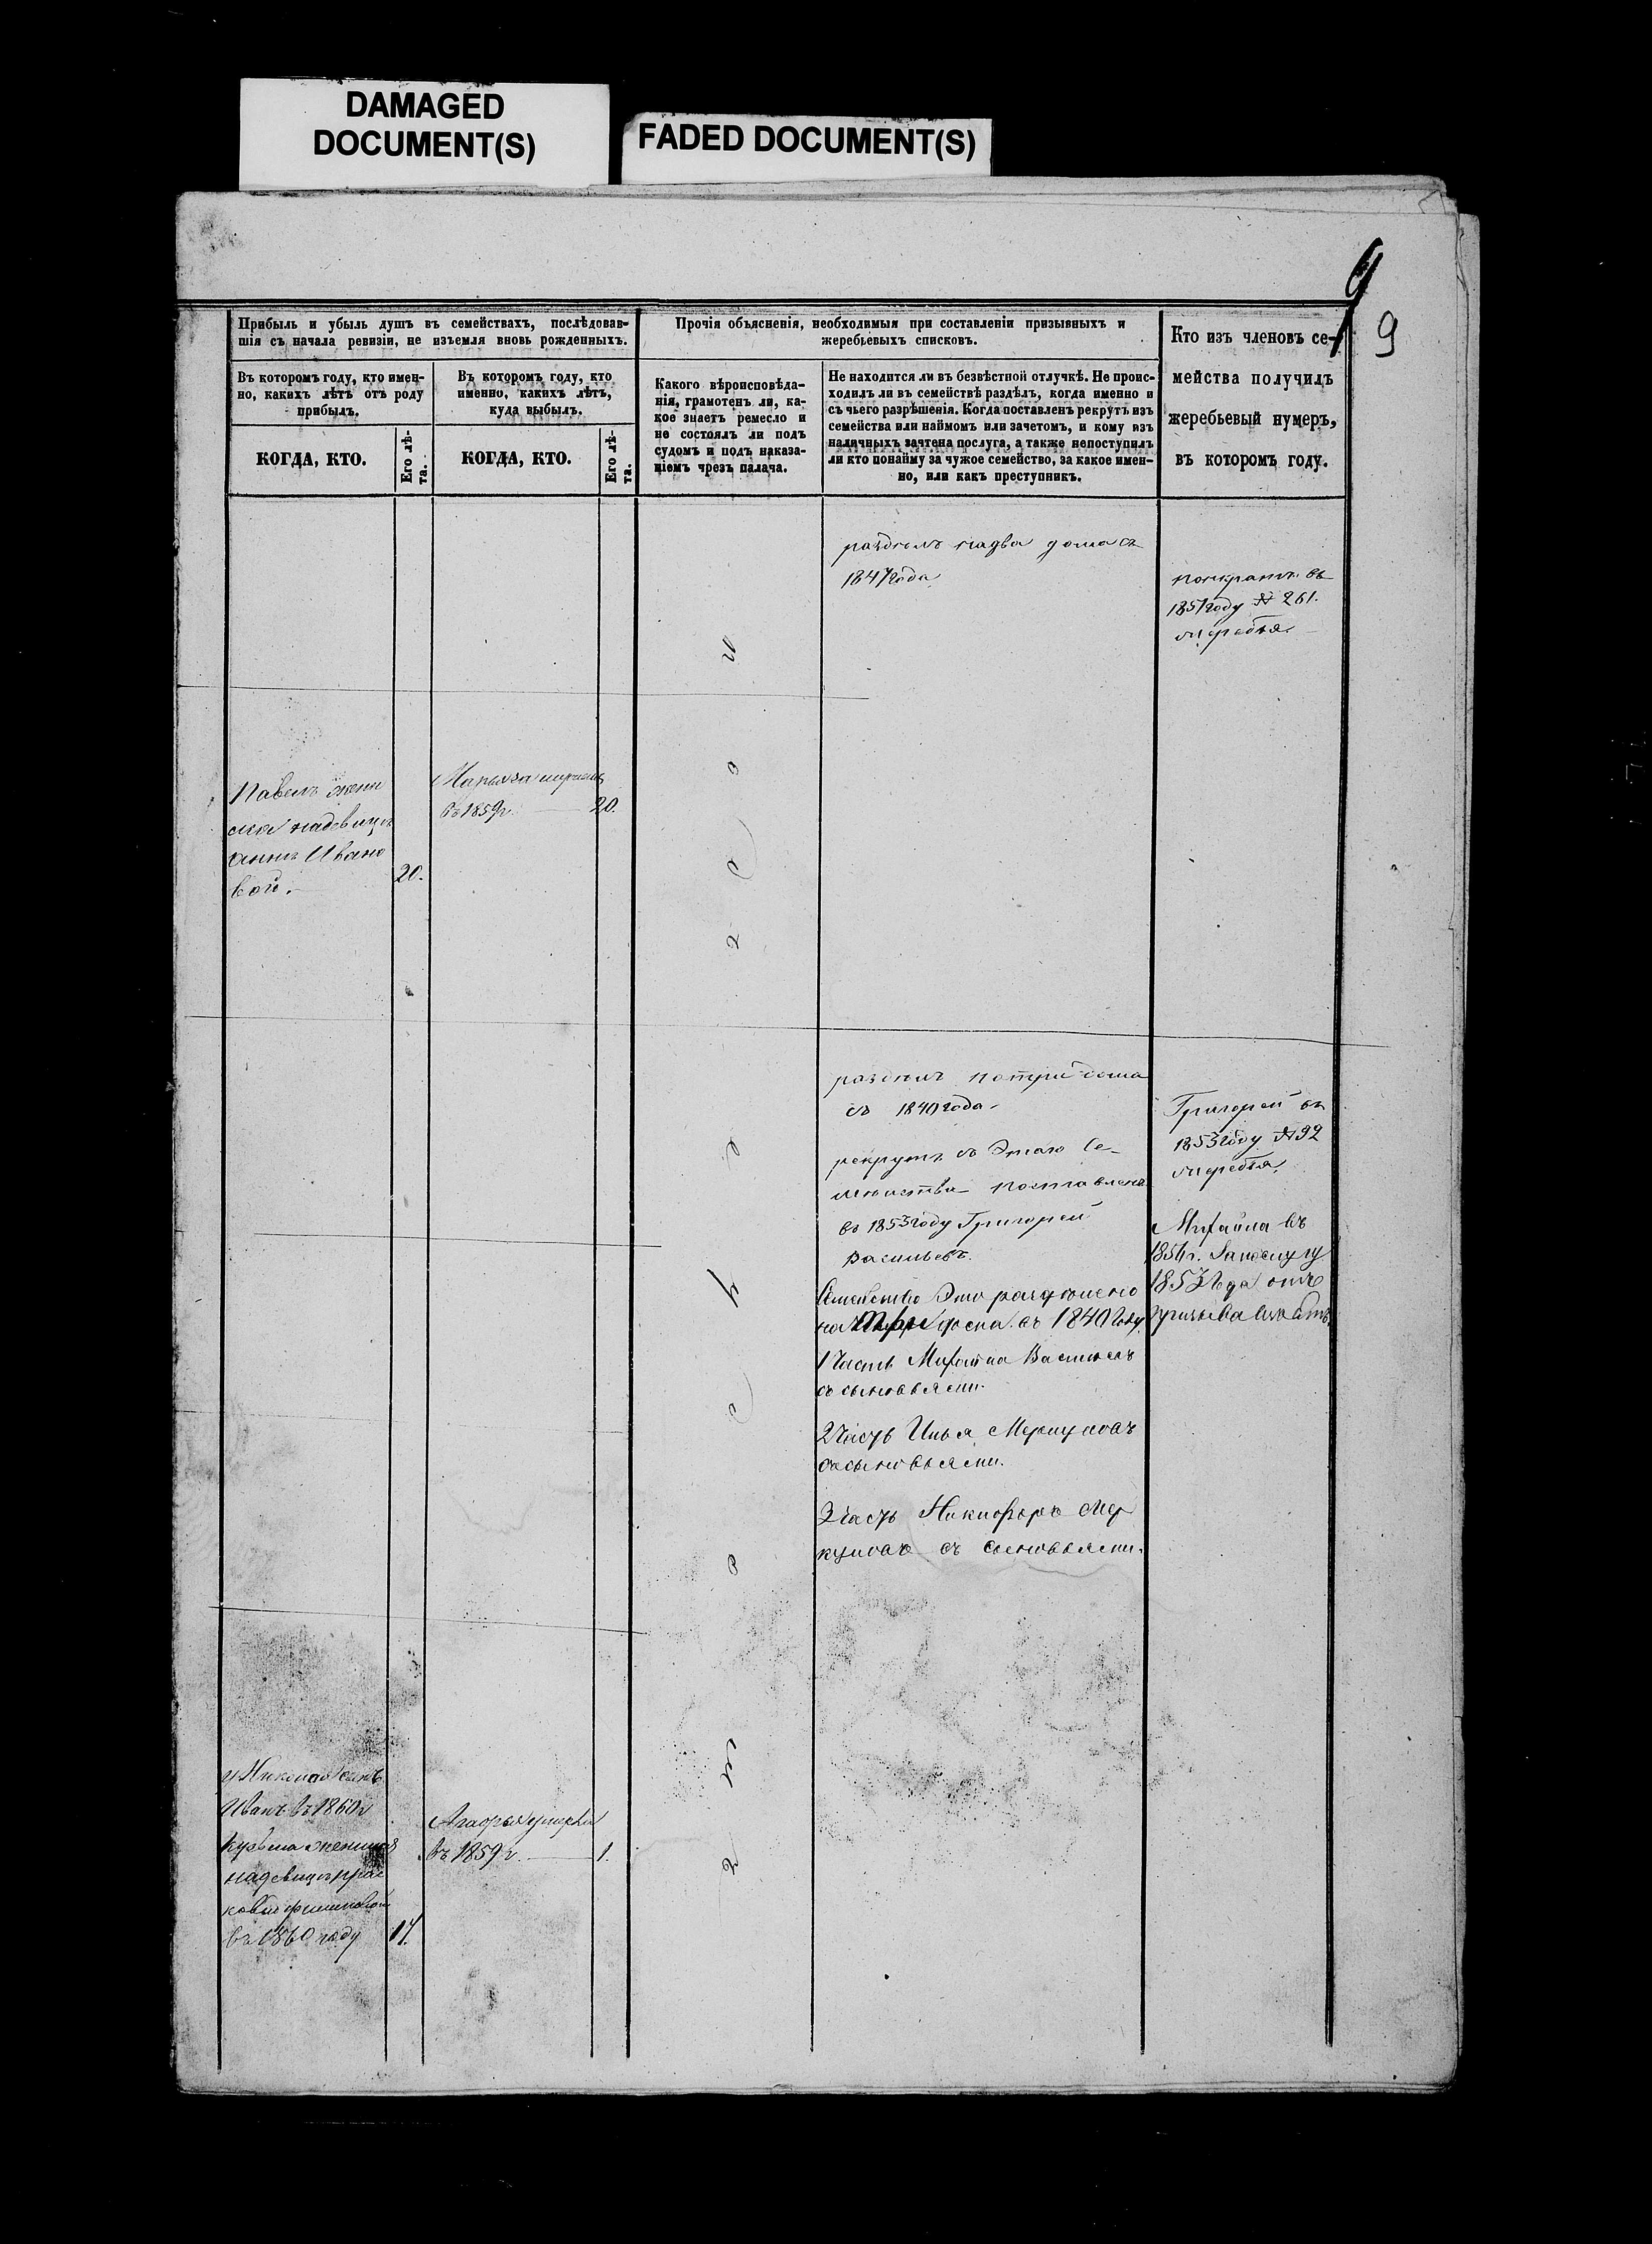 DAMAGED
DOCUMENT(S)
FADED DOCUMENT(S)
9
9
Прибыль и убыль душъ въ семействахъ, послѣдовав-
шія съ начала ревизіи, не изъемля вновь рожденныхъ.
Въ которомъ году, кто имен-
но, какихъ лѣтъ отъ роду
прибылъ.
КОГДА, КТО.
Его лѣ-
та.
Въ которомъ году, кто
именно, какихъ лѣтъ,
куда выбылъ.
КОГДА, КТО.
Его лѣ-
та.
Прочія объясненія, необходимыя при составленіи призывныхъ и
жеребьевыхъ списковъ.
Какого вѣроисповѣда-
нія, грамотенъ ли, ка-
кое знаетъ ремесло и
не состоялъ ли подъ
судомъ и подъ наказа-
ніемъ чрезъ палача.
Не находится ли въ безвѣстной отлучкѣ. Не проис-
ходилъ ли въ семействѣ раздѣлъ, когда именно и
съ чьего разрѣшенія. Когда поставленъ рекрутъ изъ
семейства или наймомъ или зачетомъ, и кому изъ
наличныхъ зачтена послуга, а также непоступилъ
ли кто понайму за чужое семейство, за какое имен-
но, или какъ преступникъ.
Кто изъ членовъ се-
мейства получилъ
жеребьевый нумеръ,
въ которомъ году.
раздѣлъ надва дома съ
1847 года
въ
1851 году № 261.
Павелъ жени
надевицѣ
анне Ивано
вой. 20.
Марья
въ 1859г. 20.
раздѣлъ потри дома
съ 1840 года.
рекрутъ съ Этаго Се-
мейства поставленъ
въ 1853 году Григорей
Васильевъ.
Семейство Это разделено
на три въ 1840 Году
1 Часть Михайла Васильевъ
съ сыновьями.
2 Часть Илья Меркуловъ
съ сыновьями.
3 Часть Никифоръ Мер
куловъ съ сыновьями.
Григорей въ
1853 году № 92
Михайла въ
1856г. Запослугу
1853 Года отъ
призыва
у Николая сынъ
Иванъ въ 1860г
Кузьма женился
надевице Прас
ковьи
въ 1860 году 17.
Агафья умерла
въ 1859г. 1.